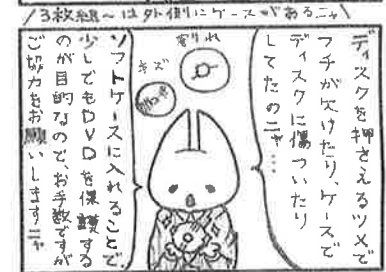 3枚組〜は外側にケースがあるニャ
ディスクを押さえるツメで
フチが欠けたり、ケースで
ディスクに傷ついたり
してたのニャ……
割れ
キズ
ソフトケースに入れることで、
少しでもDVDを保護する
のが目的なので、お手数ですが
ご協力をお願いしますニャ